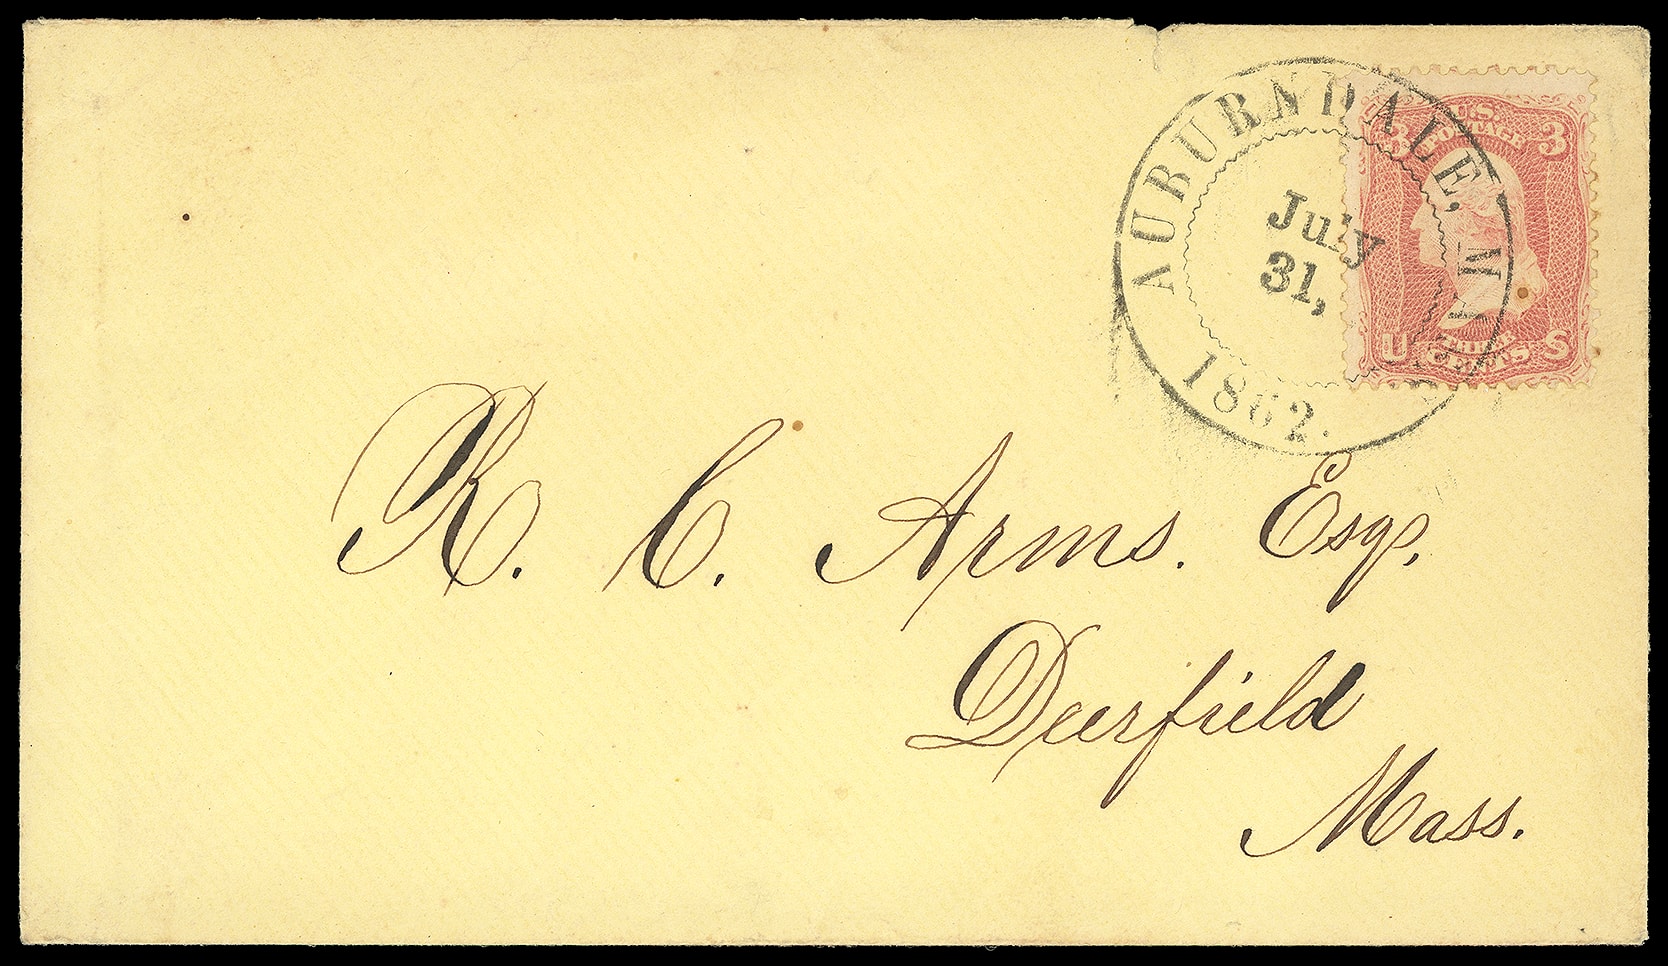 AUBURNDALE, MASS.
July
31,
1862.
U.S.
POSTAGE
3 3
U THREE S
CENTS
R. C. Arms. Esq,
Deerfield
Mass.